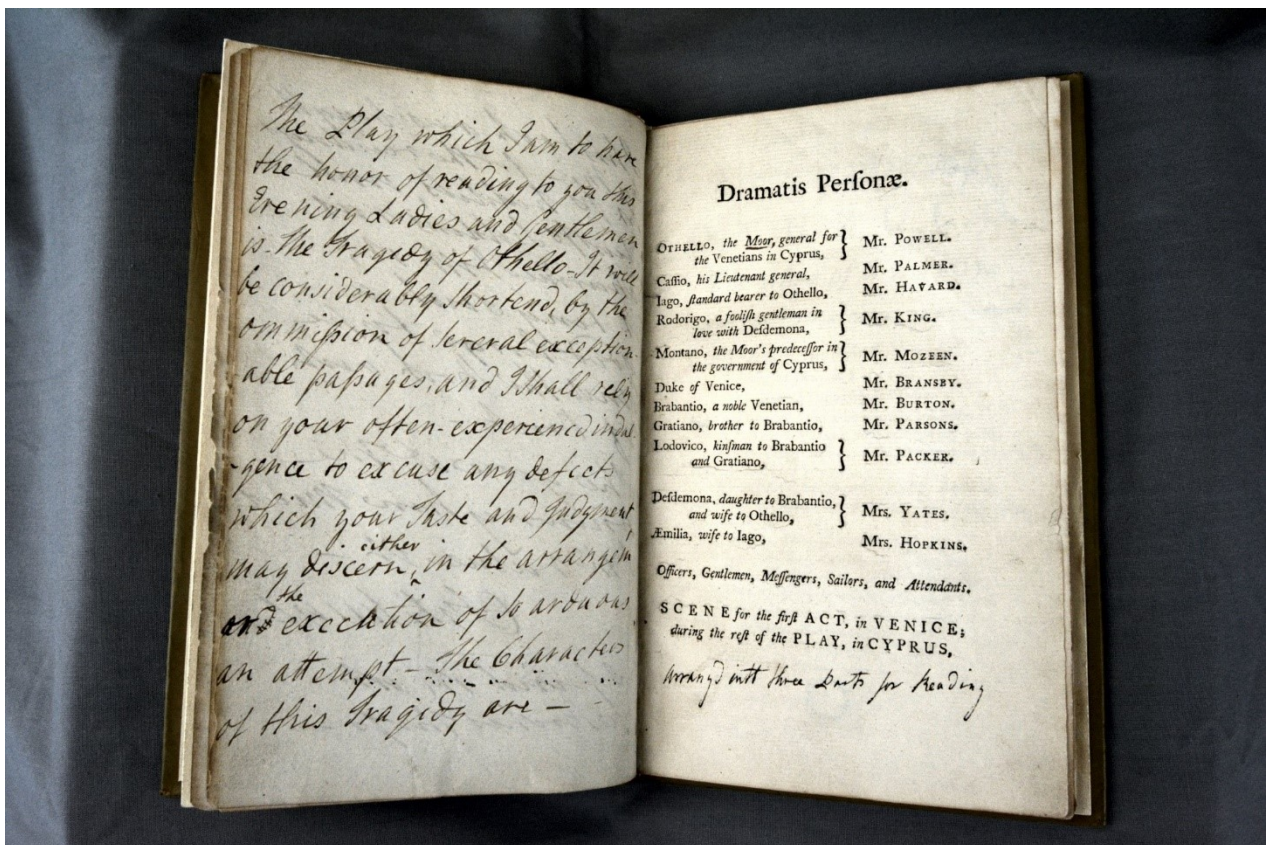 The Play which I am to have
the honor of reading to you this
Evening Ladies and Gentlemen
is the Tragedy of Othello - It will
be considerably shortend, by the
ommission of several exception-
able passages, and I shall rely
on your often-experienced indul
-gence to excuse any defects
which your Taste and Judgment,
may discern, either in the arrangem
or the execution of so arduous
an attempt - The Characters
of this Tragedy are -
Dramatis Perſonæ.
OTHELLO, the Moor, general for the Venetians in Cyprus, } Mr. POWELL.
Caſſio, his Lieutenant general, Mr. PALMER.
Iago, ſtandard bearer to Othello, Mr. HAVARD.
Rodorigo, a fooliſh gentleman in love with Deſdemona, } Mr. KING.
Montano, the Moor's predeceſſor in the government of Cyprus, } Mr. MOZEEN.
Duke of Venice, Mr. BRANSBY.
Brabantio, a noble Venetian, Mr. BURTON.
Gratiano, brother to Brabantio, Mr. PARSONS.
Lodovico, kinſman to Brabantio and Gratiano, } Mr. PACKER.
Deſdemona, daughter to Brabantio, and wife to Othello, } Mrs. YATES.
Æmilia, wife to Iago, Mrs. HOPKINS.
Officers, Gentlemen, Meſſengers, Sailors, and Attendants.
SCENE for the firſt ACT, in VENICE;
during the reſt of the PLAY, in CYPRUS.
Arrang'd into three Parts for Reading